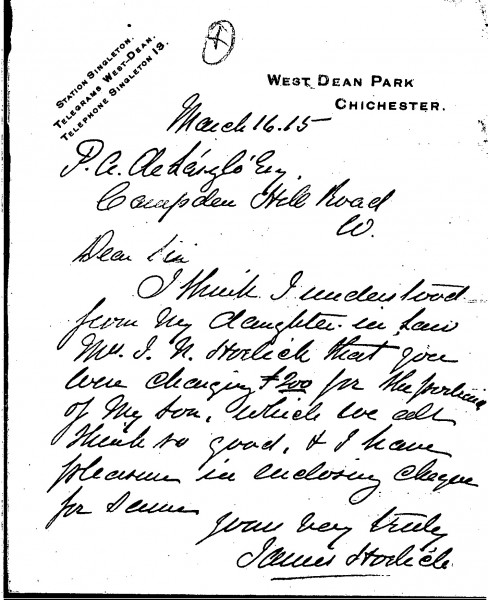 1
STATION SINGLETON.
TELEGRAMS WEST-DEAN.
TELEPHONE SINGLETON 13.
WEST DEAN PARK
CHICHESTER.
March 16.15
P. A. de László Esq.
Campden Hill Road
W.
Dear Sir
I think I understood
from my daughter-in-law
Mrs. J. N. Horlick that you
were charging £200 for the portrait
of my son, which we all
think so good, & I have
pleasure in enclosing cheque
for same
Yours very truly
James Horlick